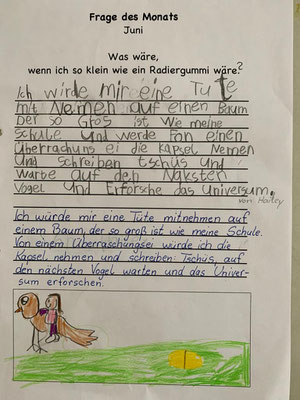 Frage des Monats
Juni
Was wäre,
wenn ich so klein wie ein Radiergummi wäre?
Ich würde mir eine Tute
mit Nemen auf einen Baum
Der so Gros ist We meine
Schule und werde Fon einen
überrachuns ei die kapsel Nemen
und schreiben tschüs und
warte auf den Näksten
Vogel und Erforsche das universum.
von Hailey
Ich würde mir eine Tüte mitnehmen auf
einem Baum, der so groß ist wie meine Schule.
Von einem Überraschungsei würde ich die
Kapsel nehmen und schreiben: Tschüs, auf
den nächsten Vogel warten und das Univer-
sum erforschen.